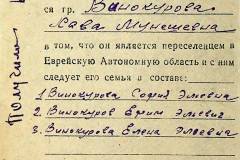 ся гр. Винокурова
Хава Мунешевна
в том, что он является переселенцем в
Еврейскую Автономную область и с ним
следует его семья в составе:
1 Винокурова София Элевна
2. Винокуров Ефим Элевич
3. Винокурова Елена Элевна
Получил